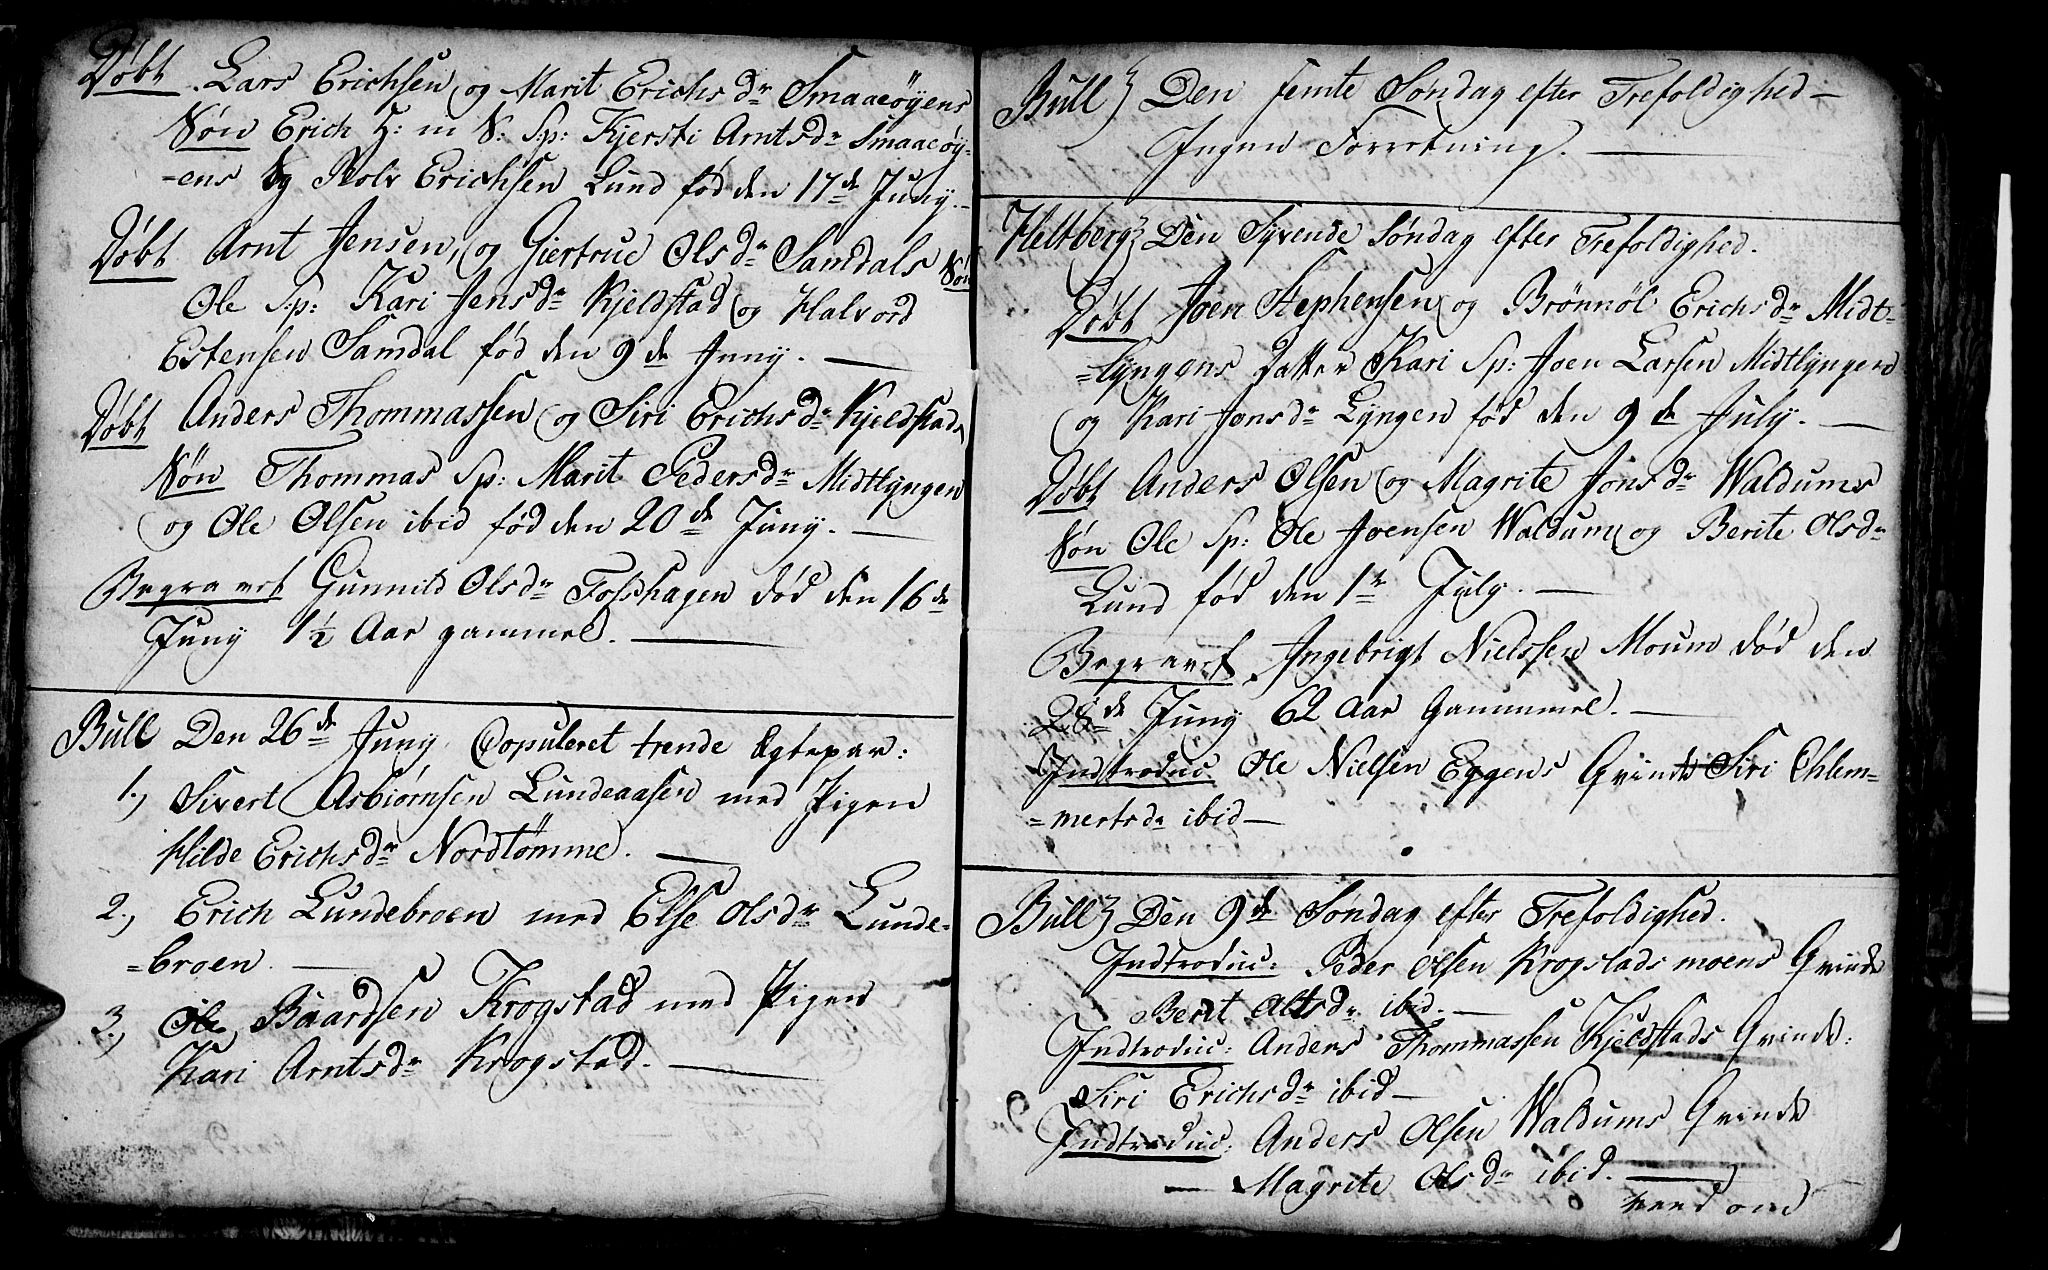 Døbt Lars Erichsen og Marit Erichsdr Smaaeøyens
Søn Erich H: m S: Sp: Kjersti Arntsdr Smaaeøy-
-ens og Rolv Erichsen Lund fød den 17de Juny.
Døbt Arnt Jensen, og Giertrue Olsdr Samdals Søn
Ole Sp: Kari Jensdr Kjeldstad og Halvord
Estensen Samdal fød den 9de Juny.
Døbt Anders Thommassen og Siri Erichsdr Kjeldstads
Søn Thommas Sp: Marit Pedersdr Midtlyngen
og Ole Olsen ibid fød den 20de Juny.
Begravet Gunnild Olsdr Fosshagen død den 16de
Juny 1½ Aar gammel.
Bull Den 26de Juny Copuleret trende Egtepar:
1., Sivert Asbiørnsen Lundeaasen med Pigen
Hilde Erichsdr Nordtømme.
2., Erich Lundebroen med Else Olsdr Lunde-
-broen.
3., Ole Baardsen Krogstad med Pigen
Kari Arntsdr Krogstad.
Bull } Den femte Søndag efter Trefoldighed
Ingen Forretning.
Heltberg } Den Syvende Søndag efter Trefoldighed.
Døbt Joen Stephensen og Brønnøl Erichsdr Midt-
-lyngens Datter Kari Sp: Joen Larsen Midtlyngen
og Kari Jonsdr Lyngen fød den 9de July.
Døbt Anders Olsen og Magrite Jonsdr Waldums
Søn Ole Sp: Ole Joensen Waldum og Berite Olsdr
Lund fød den 1te July.
Begravet Ingebrigt Nielssen Moum død den
28de Juny 62 Aar Gammel.
Indtroduc Ole Nielsen Eggens Qvinde Siri Chlem-
-mertsdr ibid
Bull } Den 9de Søndag efter Trefoldighed.
Indtroduc: Peder Olsen Krogstadsmoens Qvinde
Berit Altsdr ibid.
Indtroduc: Anders Thommassen Kjeldstads Qvinde:
Siri Erichsdr ibid
Indtroduc: Anders Olsen Waldums Qvinde
Magrite Olsdr ibid.
vend om